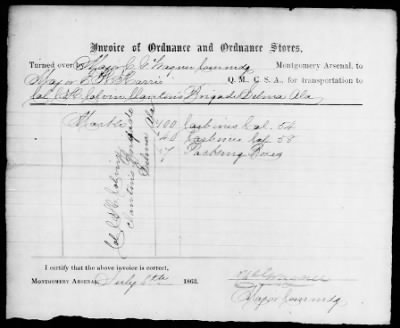 Invoice of Ordnance and Ordnance Stores.
Turned over by Major C. G. Wagner Commndg Montgomery Arsenal, to
Major E. Harris Q. M., C. S. A., for transportation to
Col. Colvin Clanton's Brigade Selma Ala
Marked 400 Carbines Cal. 54
40 Carbines Cal. 58
Packing Boxes
Col. Colvin
Clanton's Brigade
Selma Ala
I certify that the above invoice is correct,
Montgomery Arsenal, July 1863.
Major Commndg